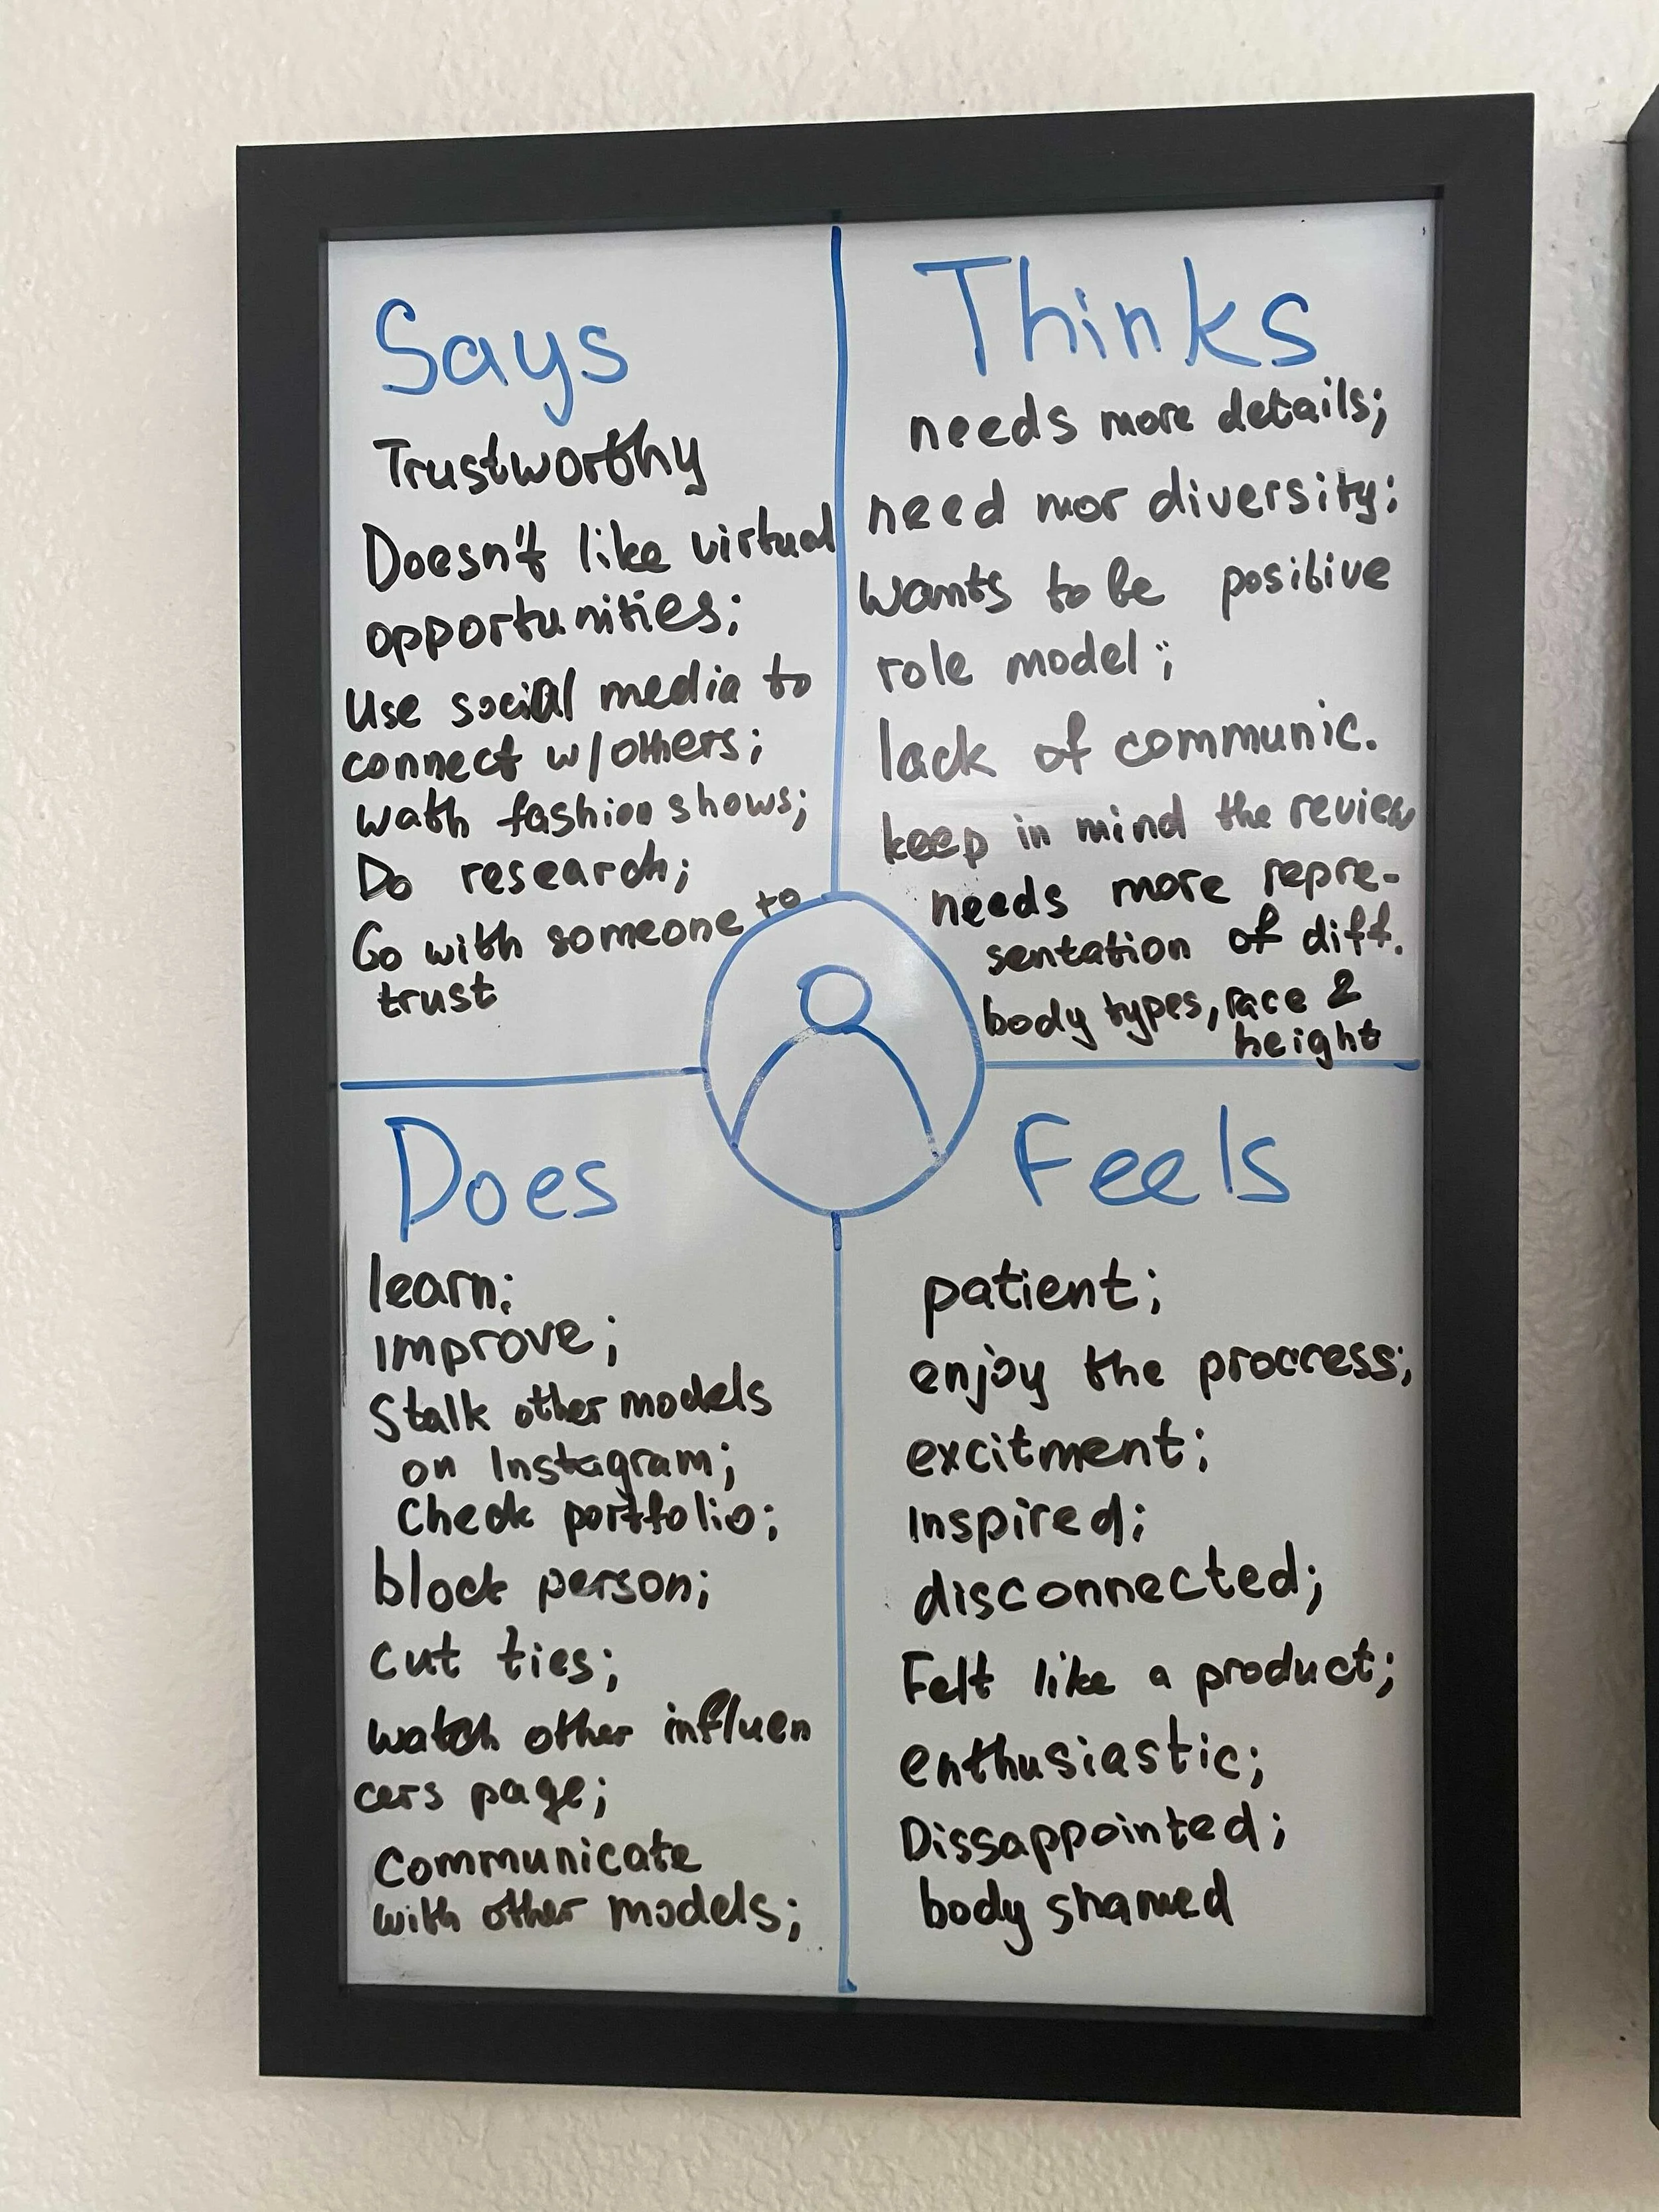 Says
Trustworthy
Doesn't like virtual
opportunities;
Use social media to
connect w/others;
wath fashion shows;
Do research;
Go with someone to
trust
Thinks
needs more details;
need mor diversity;
Wants to be positive
role model;
lack of communic.
keep in mind the review
needs more repre-
sentation of diff.
body types, race &
height
Does
learn;
improve;
Stalk other models
on Instagram;
Check portfolio;
block person;
cut ties;
watch other influen
cers page;
Communicate
with other models;
Feels
patient;
enjoy the proccess;
excitment;
Inspired;
disconnected;
Felt like a product;
enthusiastic;
Dissappointed;
body shamed